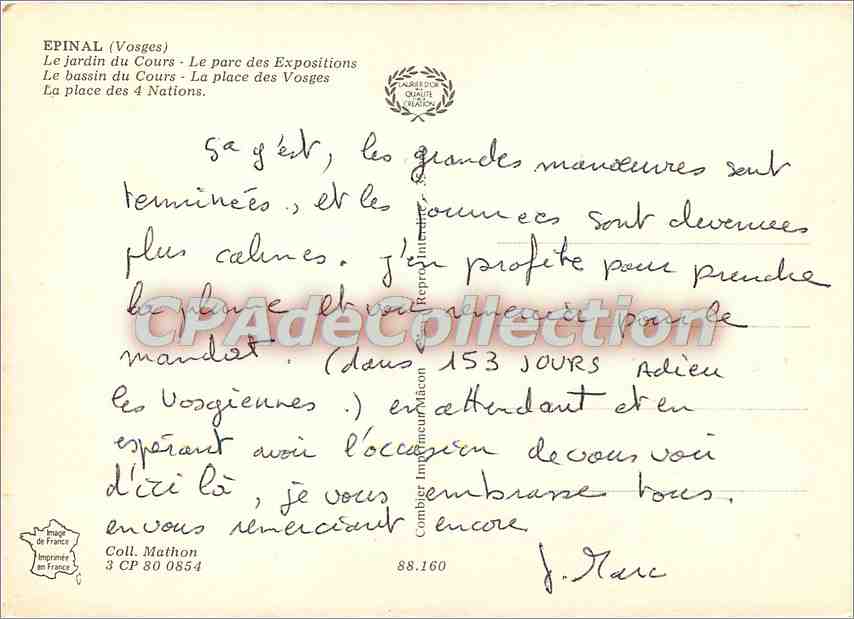 EPINAL (Vosges)
Le jardin du Cours - Le parc des Expositions
Le bassin du Cours - La place des Vosges
La place des 4 Nations.
LAURIER D'OR
DE LA
QUALITÉ
CRÉATION
ça y'est, les grandes manœuvres sont
terminées, et les journées sont devenues
plus calmes. J'en profite pour prendre
la plume et vous remercier pour le
mandat. (dans 153 JOURS Adieu
les Vosgiennes.) en attendant et en
espérant avoir l'occasion de vous voir
d'ici là, je vous embrasse tous.
en vous remerciant encore
J. Marc
CPAdeCollection
Combier Imprimeur Mâcon
Repro. Interdite
Image
de France
Imprimée
en France
Coll. Mathon
3 CP 80 0854
88.160